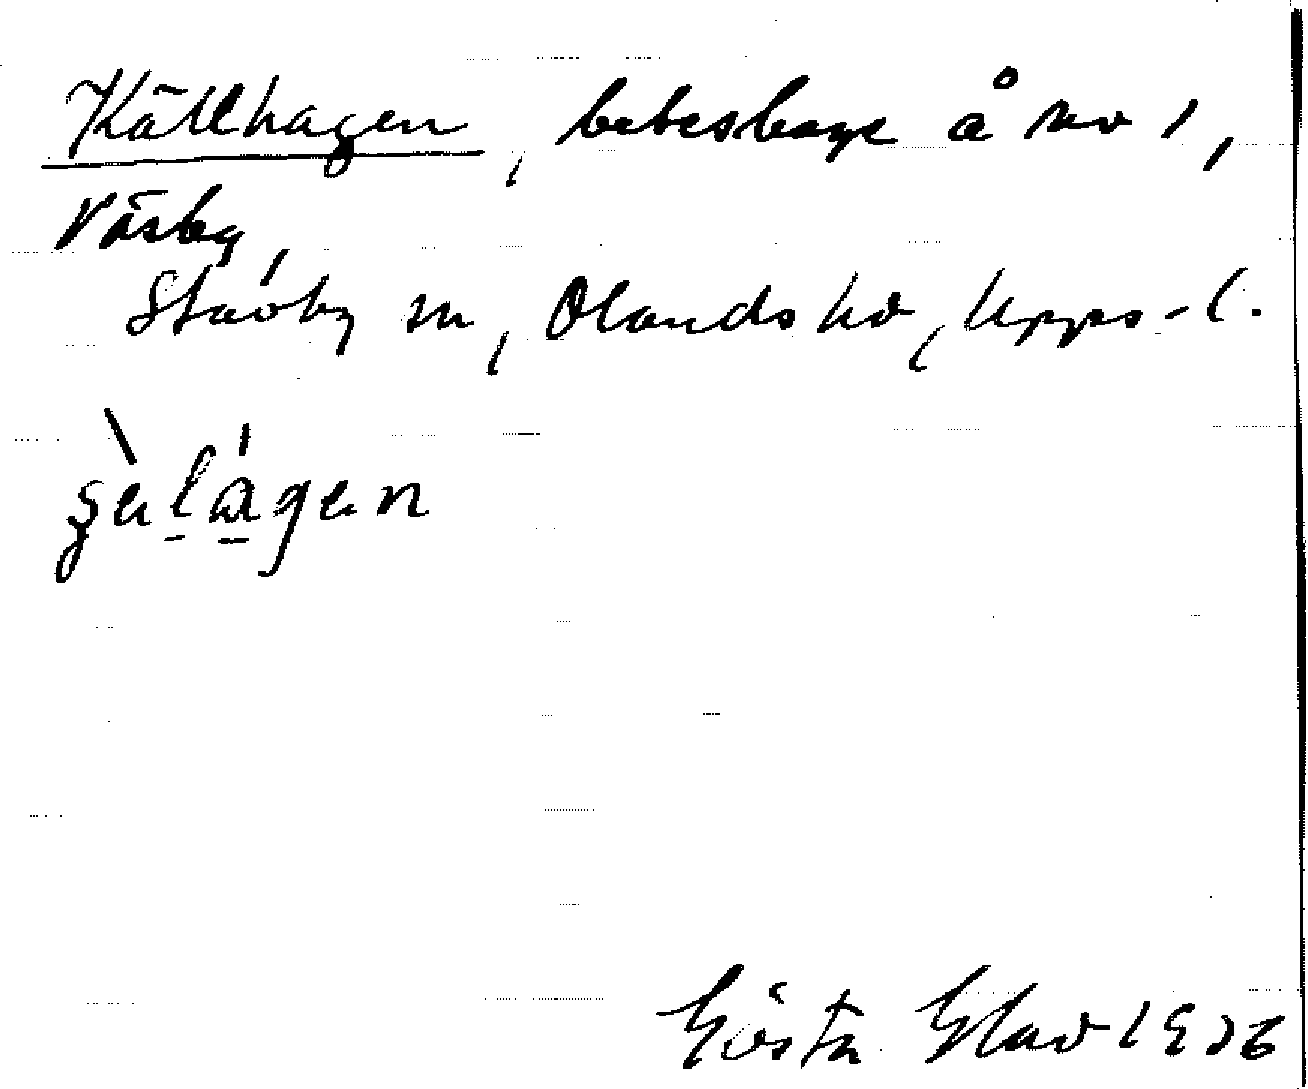 Källhagen, beteshage å nr 1,
Väsby,
Stavby sn, Olands hd, Upps-l.
Gösta Glad 1936